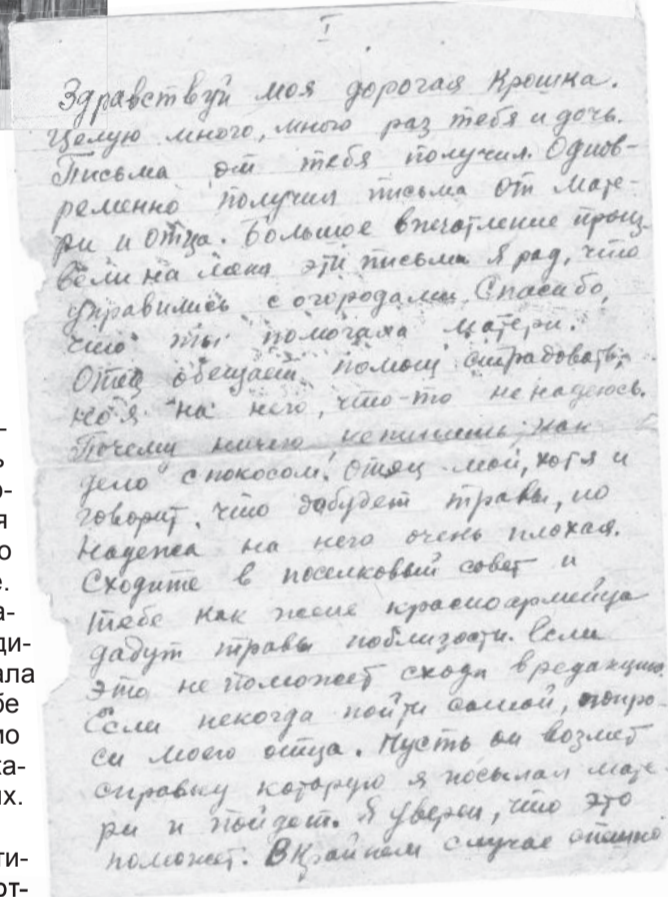 I
Здравствуй моя дорогая Крошка.
Целую много, много раз тебя и дочь.
Письма от тебя получил. Однов-
ременно получил письма от мате-
ри и отца. Большое впечатление произ-
вели на меня эти письма я рад, что
управились с огородами. Спасибо,
что ты помогала матери.
Отец обещает помощ страдовать,
но я на него, что-то не надеюсь.
Почему ничего не пишешь, как
дело с покосом. Отец мой, хотя и
говорит, что добудет травы, но
надежа на него очень плохая.
Сходите в поселковый совет и
тебе как жене красноармейца
дадут травы поблизости. Если
это не поможет сходи в редакцию.
Если некогда пойти самой, попро-
си моего отца. Пусть он возмет
справку которую я посылал мате-
ри и пойдет. Я уверен, что это
поможет. В крайнем случае
–
ь
о-
я
о
е.
а-
ди-
ала
бе
ио
ка-
их.
ти-
от-